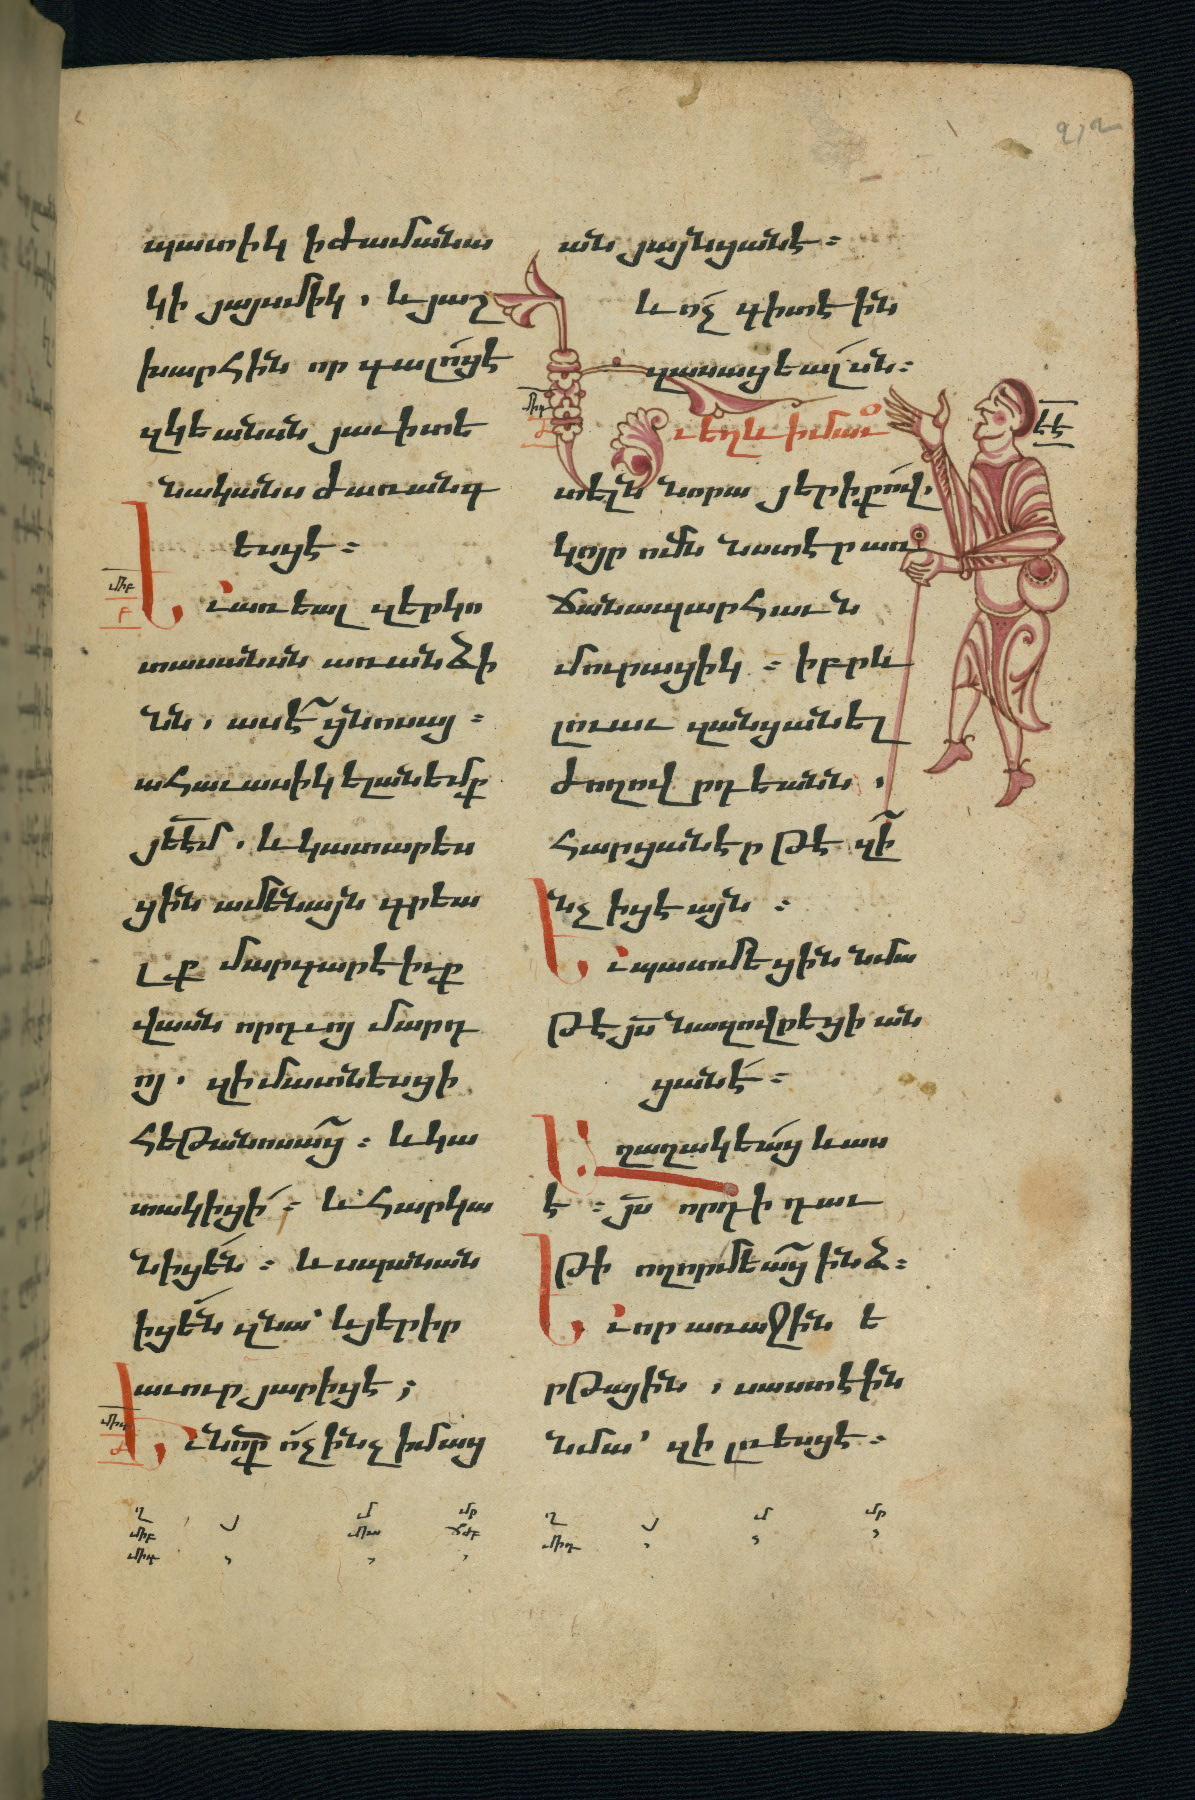 պատիկ ի ժամանա
կի յայսմիկ . և յաշ
խարհին որ գալոցէ
զկեանսն յաւիտե
նականս ժառանգ
եսցէ ։
Եւ առեալ զերկո
տասանսն առանձի
նն , ասէ ցնոսա ։
ահաւասիկ ելանեմք
յէէմ . և կատարես
ցին ամենայն գրեա
լք մարգարէիւք
վասն որդւոյ մարդ
ոյ . զի մատնեսցի
հեթանոսաց ։ և կա
տակիցի ։ և հարկա
նիցեն ։ և սպանան
իցեն զնա՝ և յերիր
աւուր յարիցէ ;
Եւ նոքա ոչինչ իմաց
ան յայնցանէ ։
և ոչ գիտէին
զասացեալսն ։
Եւ եղև ի մաւ
տել նորա յերիքով,
կոյր ոմն նստէր առ
ճանապարհաւն
մուրացիկ ։ իբրև
լուաւ զանցանել
ժողովրդեանն ,
հարցանէր թէ զի
նչ իցէ այն ։
Եւ պատմեցին նմա
թէ յս նազովրեցի ան
ցանէ ։
Եւ աղաղակեաց և աս
է ։ յս որդի դաւ
թի ողորմեաց ինձ ։
Եւ որ առաջին ե
րթային , սաստէին
նմա՝ զի լռեսցէ ։